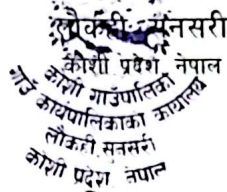 लौकही सुनसरी
कोशी प्रदेश नेपाल
कोशी गाउँपालिका
गाउँ कार्यपालिकाको कार्यालय
लौकही सुनसरी
कोशी प्रदेश नेपाल